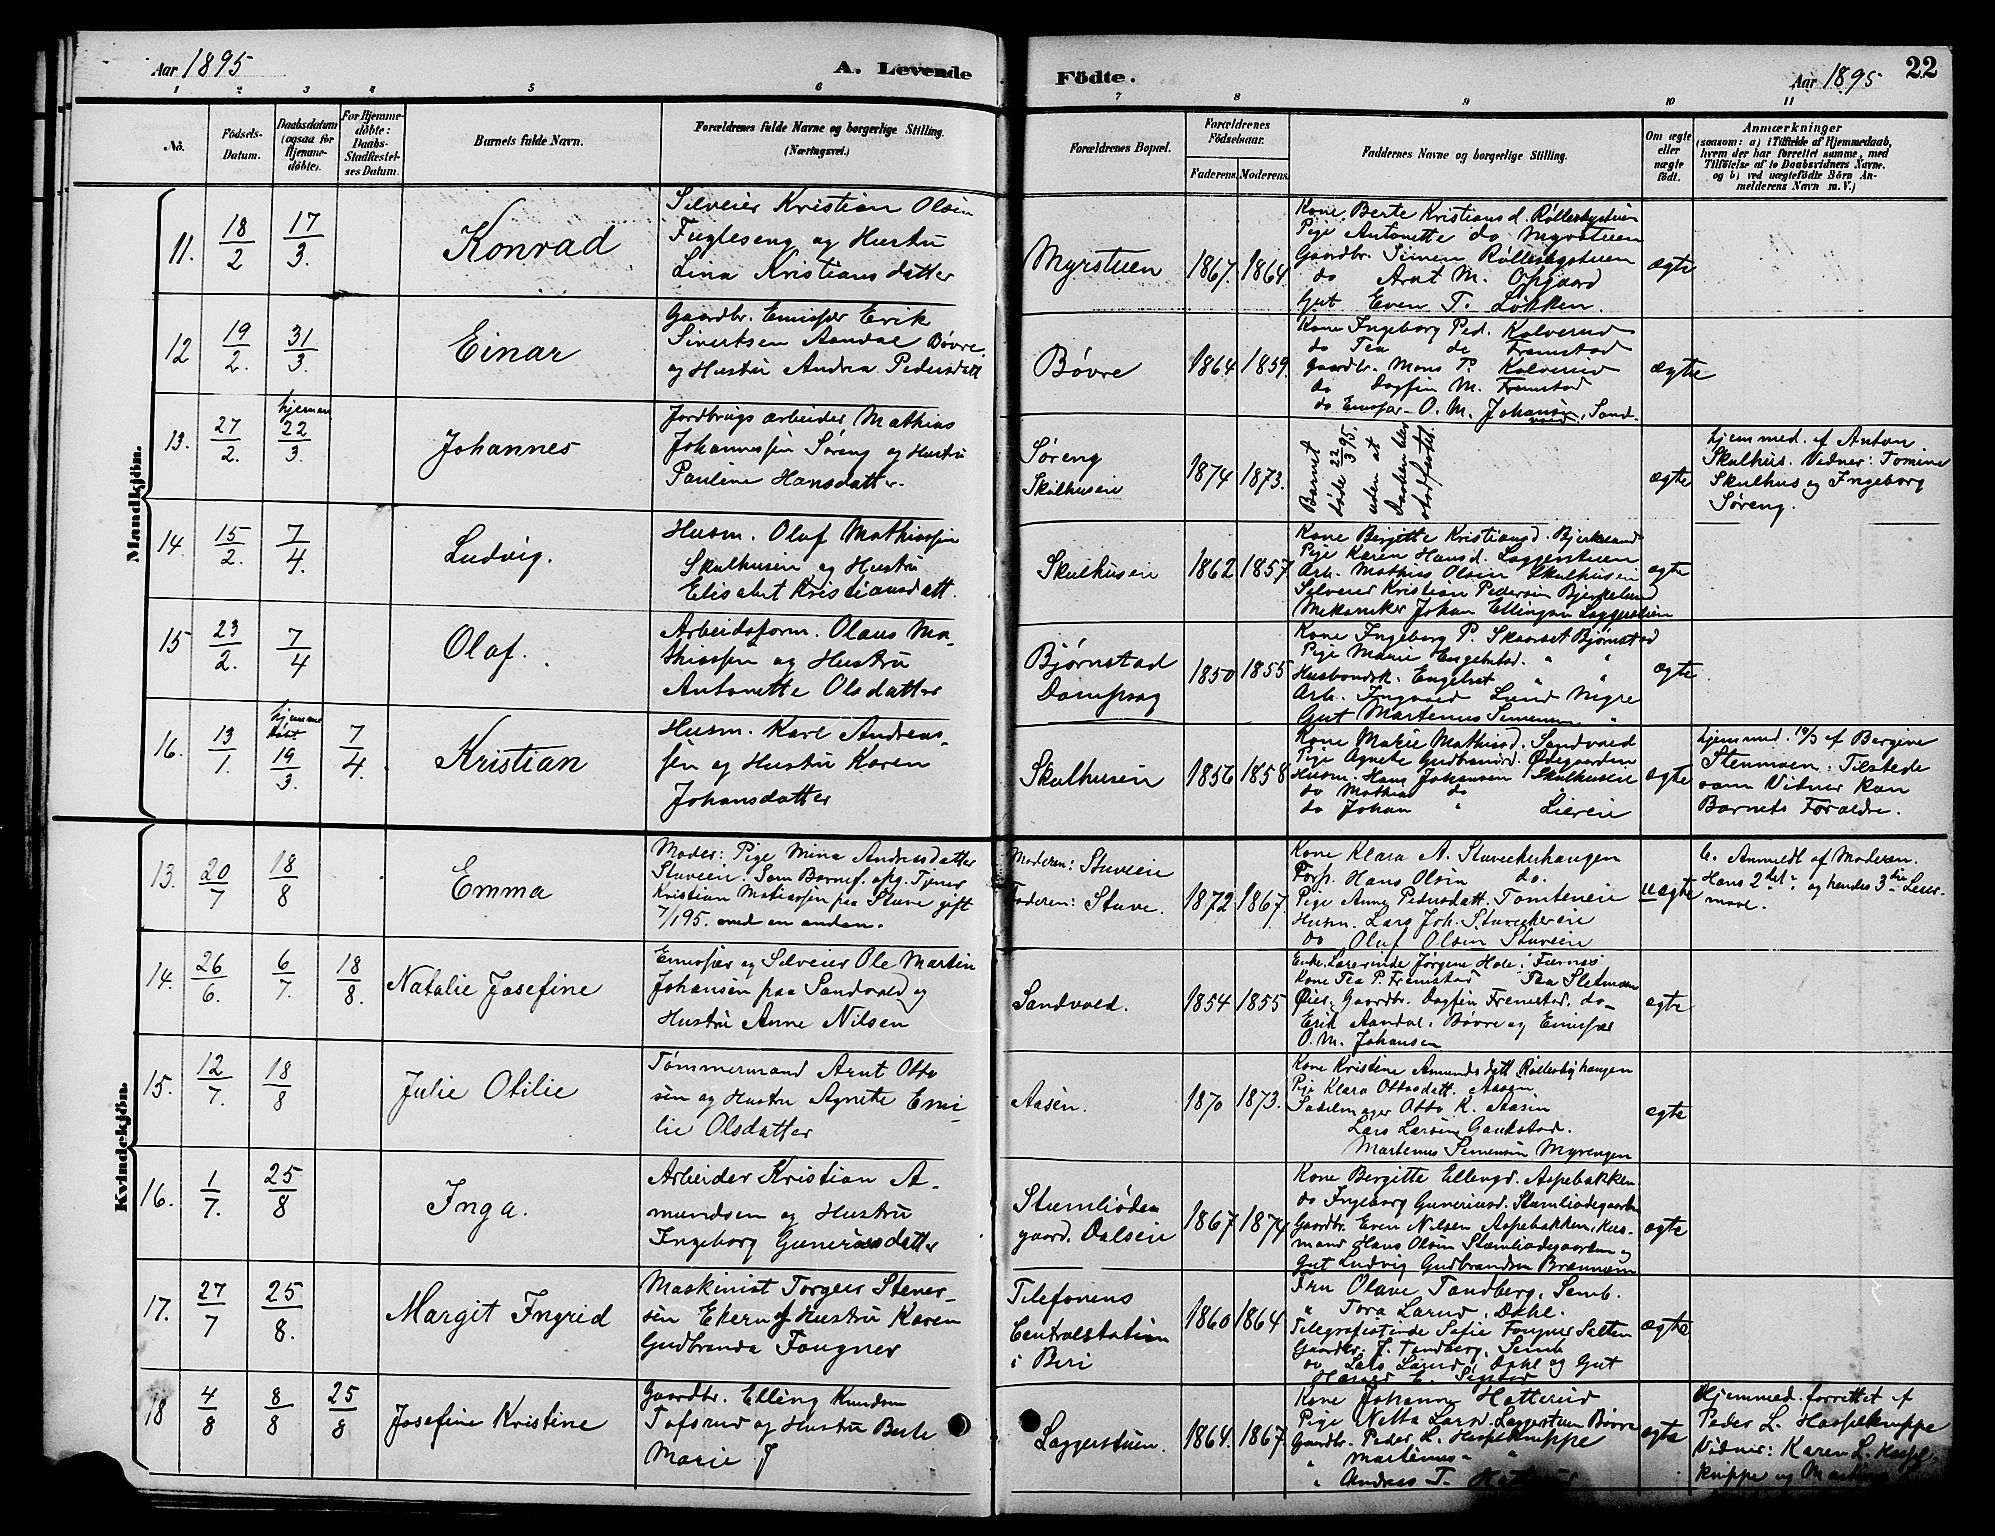 Aar 1895
A. Levende
Födte.
Aar 1895
22
1 2 3 4 5 6 7 8 9 10 11
No.
Födsels-
Datum.
Daabsdatum
(ogsaa for
Hjemme-
døbte).
For Hjemme-
døbte:
Daabs-
Stadfæstel-
ses Datum.
Barnets fulde Navn.
Forældrenes fulde Navne og borgerlige Stilling.
(Næringsvei.)
Forældrenes Bopæl.
Forældrenes
Födselsaar.
Faderens. Moderens.
Faddernes Navne og borgerlige Stilling.
Om ægte
eller
uægte
født.
Anmærkninger
(saasom: a) i Tilfælde af Hjemmedaab,
hvem der har forrettet samme, med
Tilføielse af to Daabsvidners Navne.
og b) ved uægtefødte Börn An-
melderens Navn m. V.)
Mandkjön.
11. 18/2 17/3. Konrad
Selveier Kristian Olsen
Fugleseng og Hustru
Lina Kristiansdatter
Myrstuen 1867. 1864.
Kone Berte Kristiansd. Røllerbystuen
Pige Antonette do Myrstuen
Gaardbr. Simen Røllerbystuen
do Arnt M. Opgaard
Gut Even T. Løkken.
ægte
12 19/2. 31/3. Einar
Gaardbr. Emissær Erik
Sivertsen Aandal Bøvre
og Hustru Andrea Pedersdatt
Bøvre 1864 1859.
Kone Ingeborg Ped. Kalverud
do Tea do Fremstad
Gaardbr. Mons P. Kalverud
do Dagfin M. Fremstad
do Emissær O. M. Johansen, Sand-
vold.
ægte
13. 27/2. hjemme 22/3. Johannes
Jordbrugsarbeider Mathias
Johannessen Søreng og Hustru
Pauline Hansdatter.
Søreng
Skulhuseie 1874 1873.
Barnet
døde 22/3 95.
uden at
Daaben blev
stadfæstet.
ægte
hjemmed. af Anton
Skulhus. Vidner: Tomine
Skulhus og Ingeborg
Søreng.
14. 15/2. 7/4. Ludvig.
Husm. Olaf Mathiassen
Skulhuseie og Hustru
Elisabet Kristiansdatt.
Skulhuseie 1862 1857.
Kone Birgitte Kristiansd. Bjerkelund
Pige Karen Hansd. Laggerstuen
Arb. Mathias Olsen Skulhuseie
Selveier Kristian Pedersen Bjerkelund
Mekaniker Johan Ellingsen Laggerstuen
ægte
15 23/2. 7/4 Olaf.
Arbeidsform. Olaus Ma-
thiassen og Hustru
Antonette Olsdatter
Bjørnstad
Dampsag 1850 1855
Kone Ingeborg P. Skaaret Bjørnstad
Pige Marie Engebretsd. " "
Husbondsk. Engebret " "
Arb. Ingvald Lund Nigre
Gut Martenus Simensen "
ægte
16. 13/1. hjemme
døbt
19/3 7/4. Kristian
Husm. Karl Andreas-
sen og Hustru Karen
Johansdatter
Skulhuseie 1856 1858
Kone Marie Mathisd. Sandvold
Pige Agnete Gudbrandsd. Ødegaarden
Husm. Hans Johansen Skulhuseie
do Mathias do
do Johan " Liereie
ægte
hjemmed. 19/3 af Bergine
Stenmoen: Tilstede
som Vidner kun
Barnets Forældre.
Kvindekjön.
13. 20/7 18/8 Emma
Moder: Pige Mina Andreasdatter
Stuveeie. Som Barnef. opg. Tjener
Kristian Matiassen paa Stuve gift
7/1 95. med en anden.
Moderen: Stuveeie
Faderen: Stuve. 1872. 1867.
Kone Klara A. Stuveekerhaugen
Forp. Hans Olsen do.
Pige Anne Pedersdatt. Tomteneie
Husm. Lars Joh. Stuveekereie
do Oluf Olsen Stuveeie
uægte
b. Anmeldt af Moderen.
Hans 2det og hendes 3die Leier-
maal.
14. 26/6. 6/7. 18/8. Natalie Josefine
Emissær og Selveier Ole Martin
Johansen paa Sandvold og
Hustru Anne Nilsen
Sandvold. 1854 1855
Enke, Lærerinde Jørgine Hole, Furnes
Kone Tea P. Fremstad Tea Sletmoen
Øier. Gaardbr. Dagfin Fremstad. do
Erik Aandal. Bøvre og Emissær
O. M. Johansen
ægte
15. 12/7. 18/8 Julie Otilie
Tømmermand Arnt Otto
sen og Hustru Agnete Emi-
lie Olsdatter
Aasen. 1870 1873.
Kone Kristine Amundsdatt. Røllerbyhaugen
Pige Klara Ottosdatt. Aasen
Sadelmager Otto K. Aasen
Lars Larsen Gaukstad.
Martenus Simensen Myrengen
ægte
16. 1/7. 25/8 Inga.
Arbeider Kristian A-
mundsen og Hustru
Ingeborg Gunerusdatter
Stumliøde
gaard. Dalseie 1867 1874
Kone Bergitte Ellingd. Aspebakken
do Ingeborg Gunerusd. Stumliødegaarden
Gaardbr. Even Nilsen Aspebakken, Hus-
mand Hans Olsen Stumliødegaarden og
Gut Ludvig Gudbrandsen
ægte
17. 27/7 25/8. Margit Ingrid
Maskinist Torgeir Stener-
sen Ekern og Hustru Karen
Gudbranda Fougner
Telefonens
Centralstation
i Biri 1860 1864
Fru Olave Tandberg, Semb.
" Tora Larud, Dahl.
Telegrafistinde Sofie Fougner Salten
Gaardbr. J. Tandberg, Semb
do Lars Larud, Dahl og Gut
ægte
18 4/8 8/8 25/8 Josefine Kristine
Gaardbr. Elling Knudsen
Tofsrud og Hustru Berte
Marie J
Laggerstuen. 1864. 1867.
Kone Johanne Hatterud
Pige Netta Larsd. Laggerstuen Bøvre
Gaardbr. Peder L. Haspeknuppe
" Martenus "
" Andreas T.
ægte
Hjemmed. forrettet af
Peder L. Haspeknuppe
Vidner: Karen L. Haspe-
knuppe og